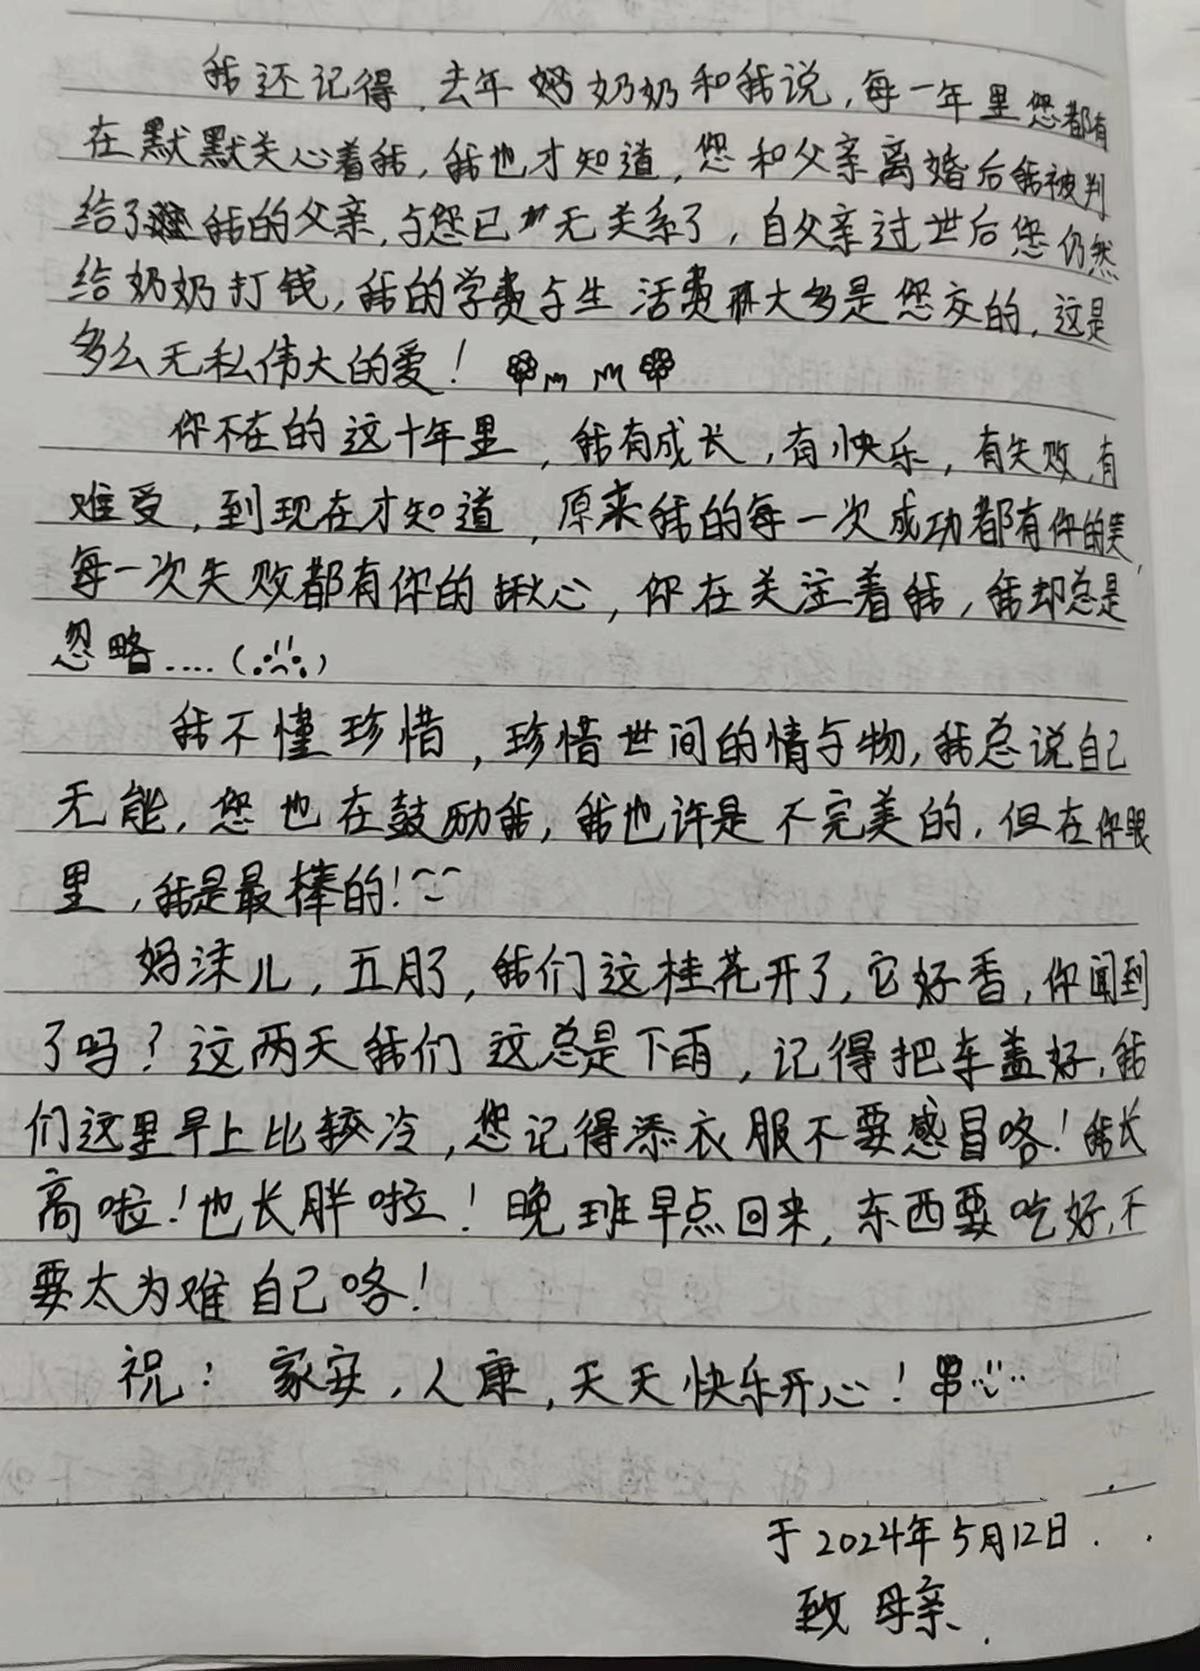 我还记得，去年奶奶和我说，每一年里您都有
在默默关心着我，我也才知道，您和父亲离婚后我被判
给了我的父亲，与您已无关系了，自父亲过世后您仍然
给奶奶打钱，我的学费与生活费大多是您交的，这是
多么无私伟大的爱！
你不在的这十年里，我有成长，有快乐，有失败，有
难受，到现在才知道，原来我的每一次成功都有你的笑，
每一次失败都有你的揪心，你在关注着我，我却总是
忽略....(
我不懂珍惜，珍惜世间的情与物，我总说自己
无能，您也在鼓励我，我也许是不完美的，但在你眼
里，我是最棒的！
妈沫儿，五月了，我们这桂花开了，它好香，你闻到
了吗？这两天我们这总是下雨，记得把车盖好，我
们这里早上比较冷，您记得添衣服不要感冒咯！我长
高啦！也长胖啦！晚班早点回来，东西要吃好，不
要太为难自己咯！
祝：家安，人康，天天快乐开心！
于2024年5月12日.
致母亲.